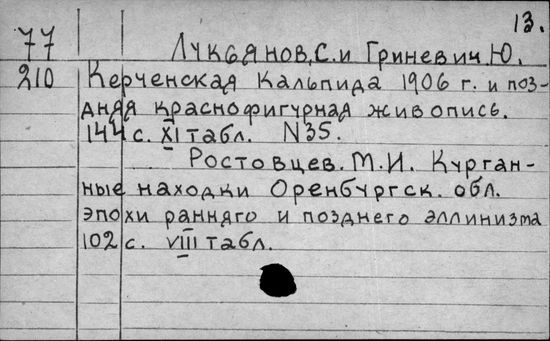 13.
77 Лукьянов, С. и Гриневич. Ю.
210 Керченская Кальпида 1906 г. и поз-
дняя краснофигурная живопись.
144 с. XI табл. N35.
Ростовцев. М. И. Курган-
ные находки Оренбургск. обл.
эпохи ранняго и позднего эллинизма
102 с. VIII табл.